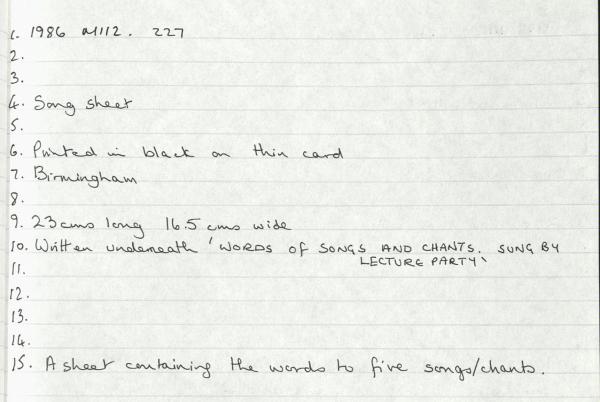 1. 1986 M112. 227
2.
3.
4. Song sheet
5.
6. Printed in black on thin card
7. Birmingham
8.
9. 23cms long 16.5 cms wide
10. Written underneath 'WORDS OF SONGS AND CHANTS. SUNG BY
LECTURE PARTY'
11.
12.
13.
14.
15. A sheet containing the words to five songs/chants.